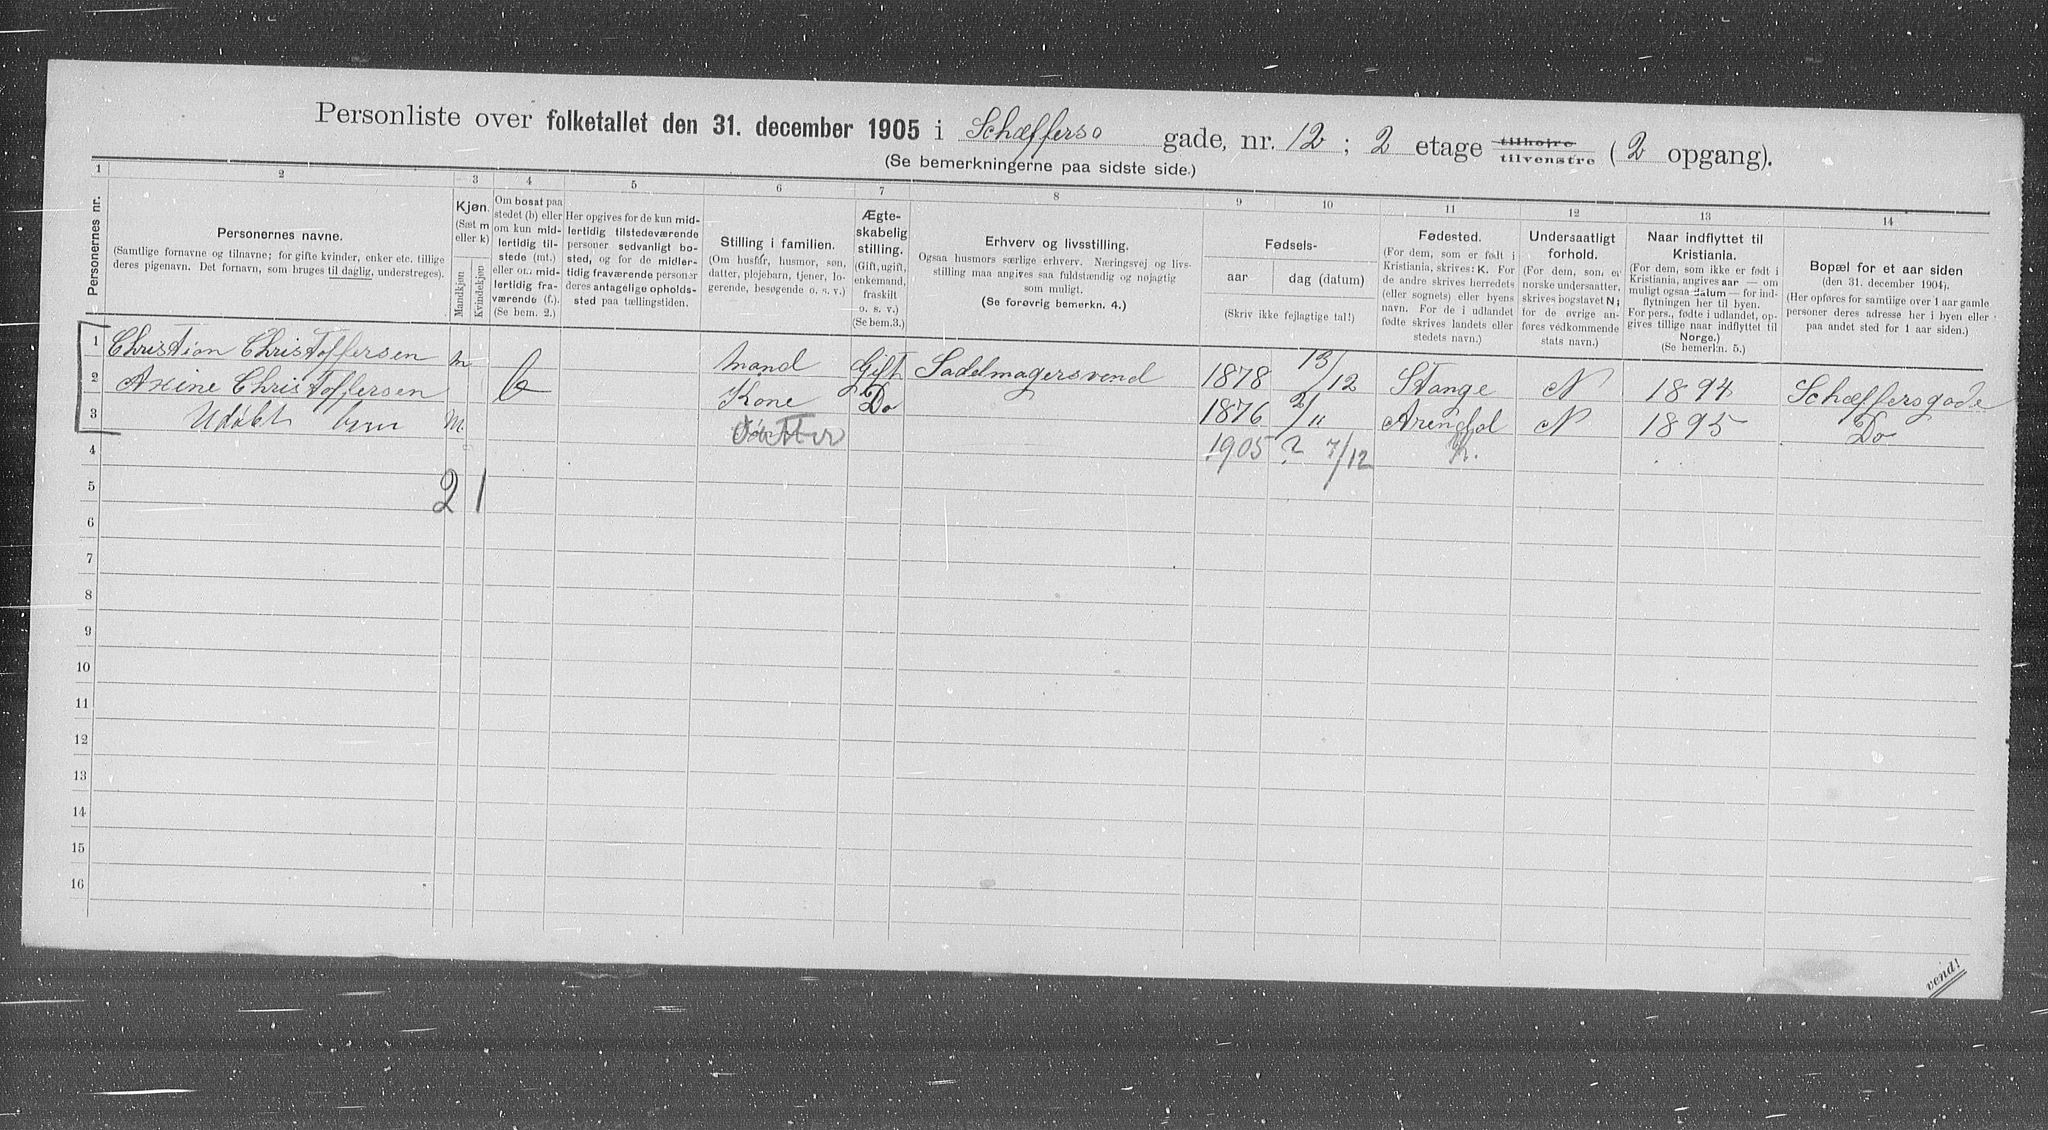 Personliste over folketallet den 31. december 1905 i Schæffers gade, nr. 12; 2 etage tilhøjre tilvenstre (2 opgang).
(Se bemerkningerne paa sidste side.)
1 2 3 4 5 6 7 8 9 10 11 12 13 14
Personernes nr.
Personernes navne.
(Samtlige fornavne og tilnavne; for gifte kvinder, enker etc. tillige
deres pigenavn. Det fornavn, som bruges til daglig, understreges).
Kjøn.
(Sæt m
eller k)
Mandkjøn
Kvindekjøn
Om bosat paa
stedet (b) eller
om kun mid-
lertidig til-
stede (mt.)
eller om mid-
lertidig fra-
værende (f.).
(Se bem. 2.)
Her opgives for de kun mid-
lertidig tilstedeværende
personer sedvanligt bo-
sted, og for de midler-
tidig fraværende personer
deres antagelige opholds-
sted paa tællingstiden.
Stilling i familien.
(Om husfar, husmor, søn,
datter, plejebarn, tjener, lo-
gerende, besøgende o. s. v.)
Ægte-
skabelig
stilling.
(Gift, ugift,
enkemand,
fraskilt
o. s. v.)
(Se bem. 3.)
Erhverv og livsstilling.
Ogsaa husmors særlige erhverv. Næringsvej og livs-
stilling maa angives saa fuldstændig og nøjagtig
som muligt.
(Se forøvrig bemerkn. 4.)
Fødsels-
aar
dag (datum)
(Skriv ikke fejlagtige tal!)
Fødested.
(For dem, som er født i
Kristiania, skrives: K. For
de andre skrives herredets
(eller sognets) eller byens
navn. For de i udlandet
fødte skrives landets eller
stedets navn.)
Undersaatligt
forhold.
(For dem, som er
norske undersaatter,
skrives bogstavet N;
for de øvrige an-
føres vedkommende
stats navn.)
Naar indflyttet til
Kristiania.
(For dem, som ikke er født i
Kristiania, angives aar — om
muligt ogsaa datum — for ind-
flytningen her til byen.
For pers., fødte i udlandet, op-
gives tillige naar indflyttet til
Norge.)
(Se bemerkn. 5.)
Bopæl for et aar siden
(den 31. december 1904).
(Her opføres for samtlige over 1 aar gamle
personer deres adresse her i byen eller
paa andet sted for 1 aar siden.)
1 Christian Christoffersen m Mand Gift Sadelmagersvend 1878 13/12 Stange N 1894 Schæffersgade
2 Axine Christoffersen b Kone Do 1876 2/11 Arendal N 1895 Do
3 Udøbt barn m 1905 ? 7/12 K.
4
2 1
5
6
7
8
9
10
11
12
13
14
15
16
vend!